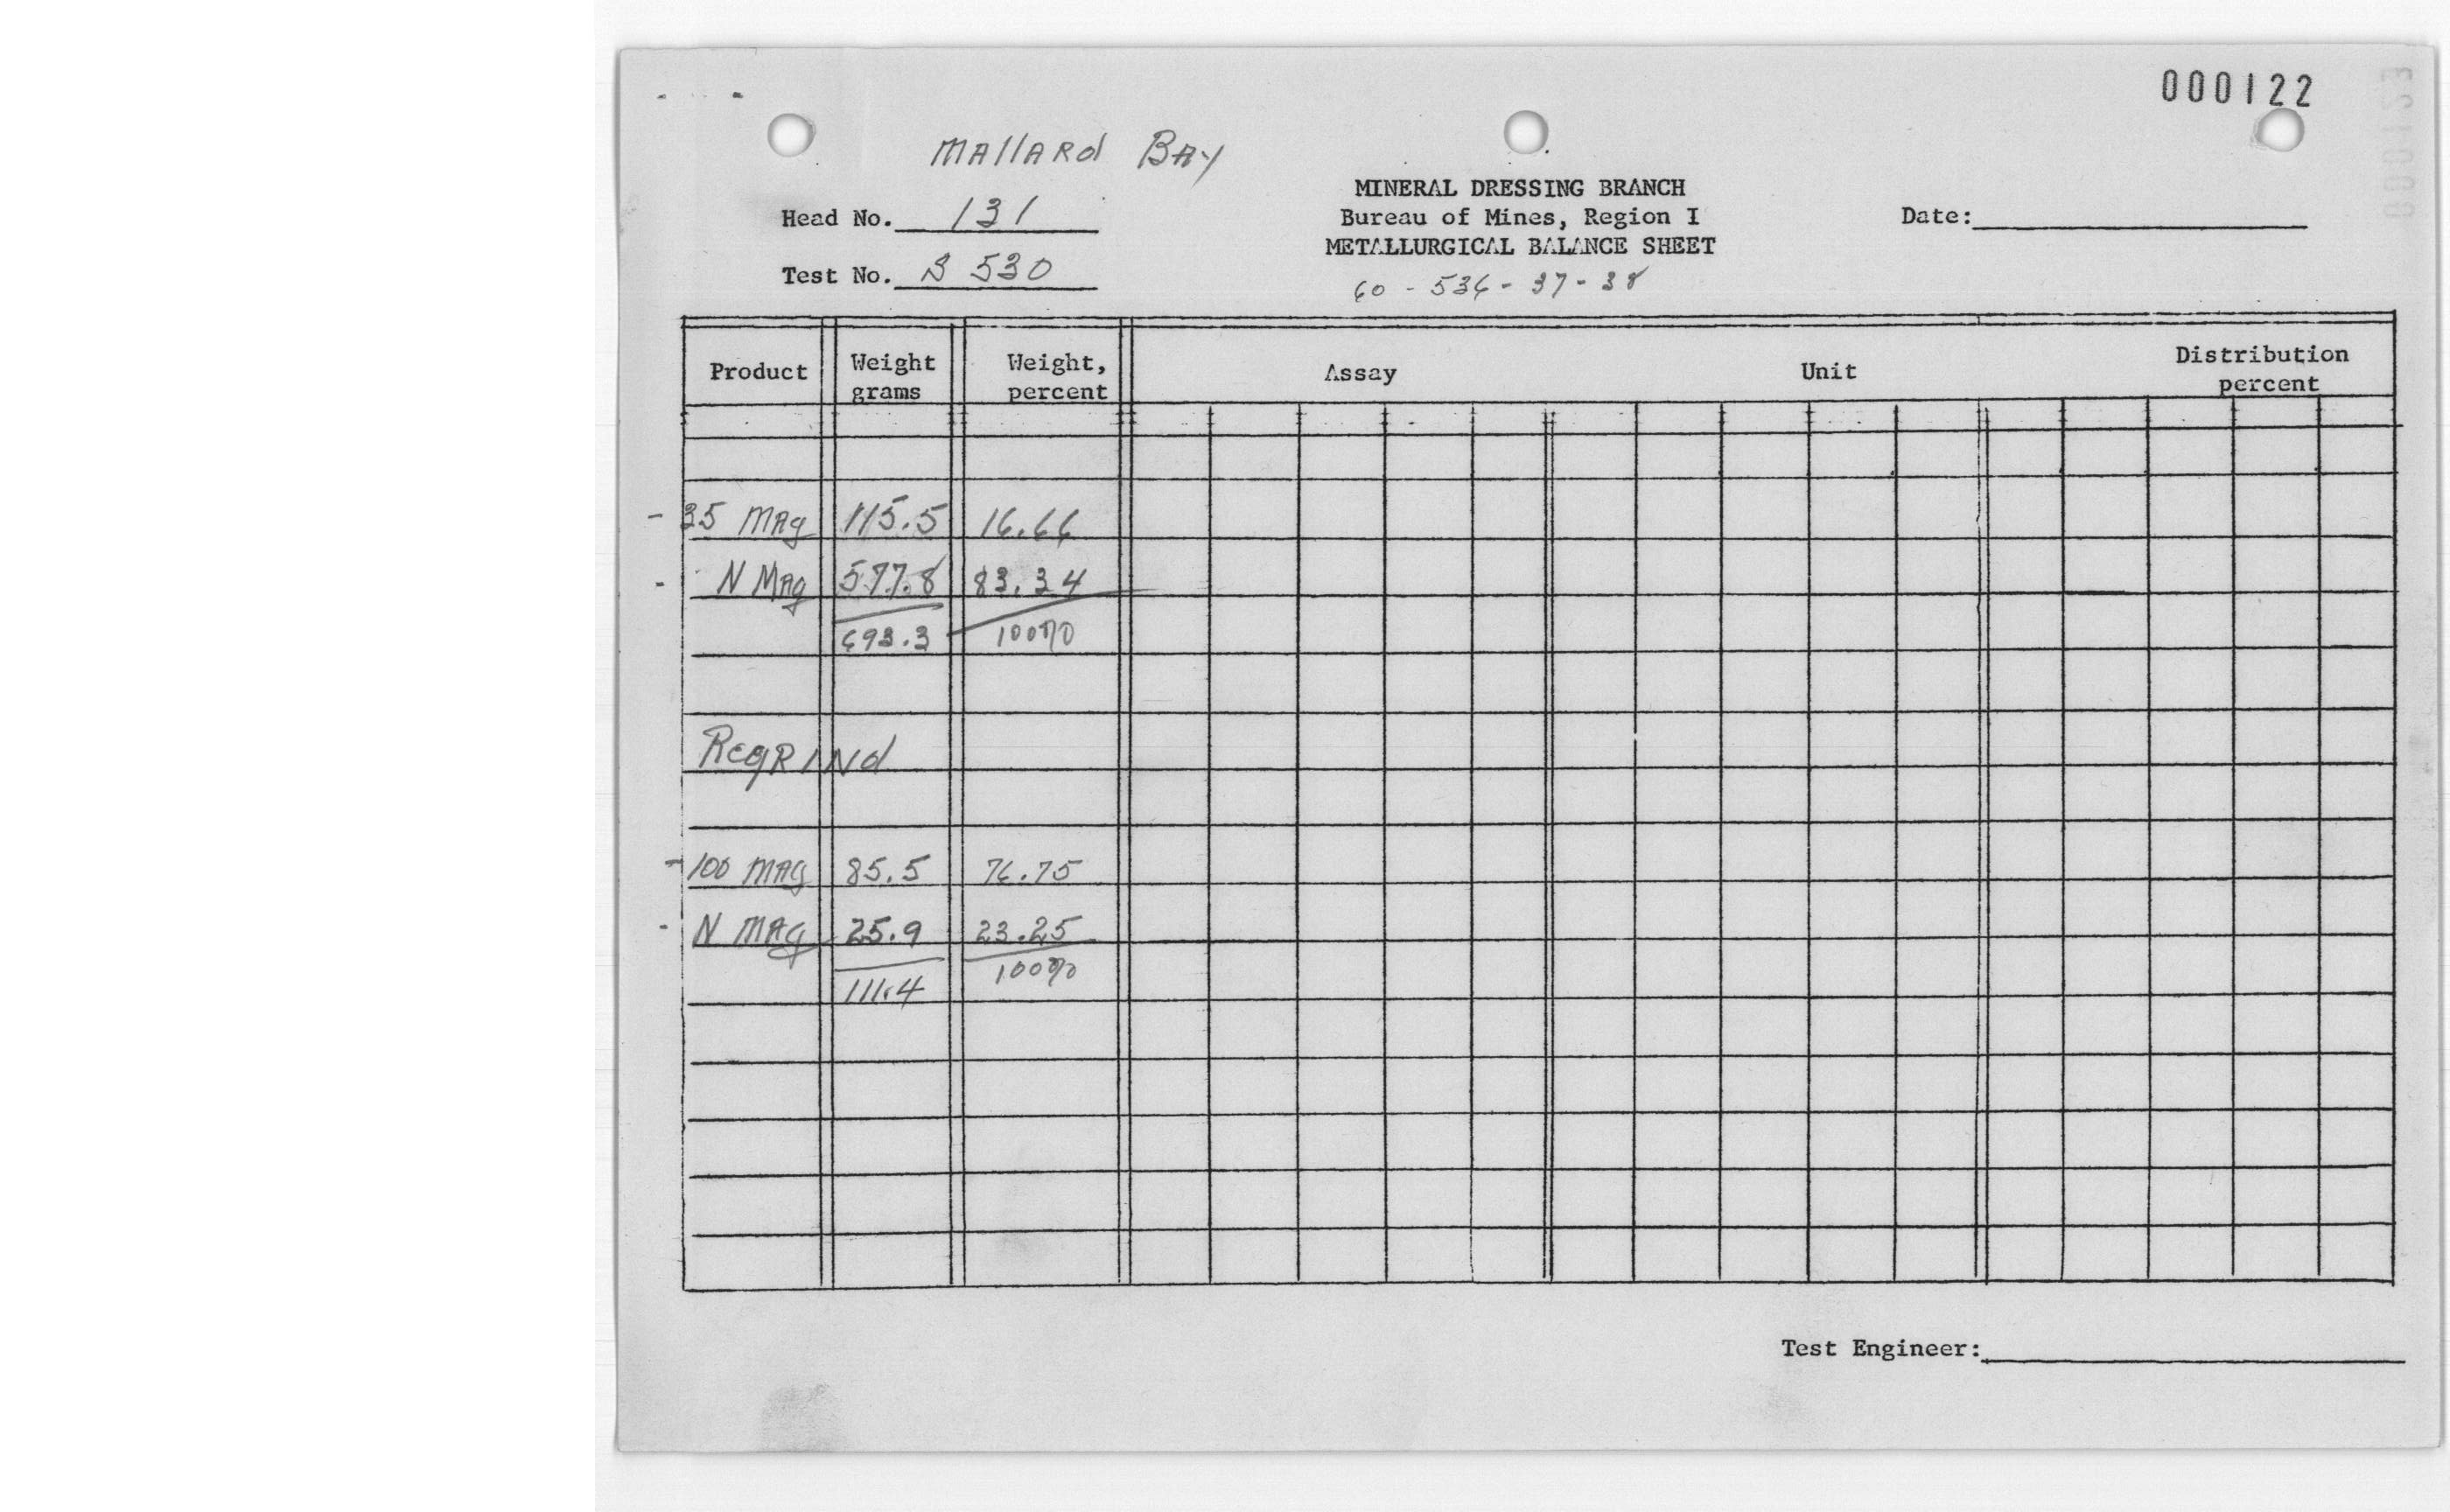 000122
Mallard Bay
MINERAL DRESSING BRANCH
Head No. 131
Bureau of Mines, Region I
Date:
METALLURGICAL BALANCE SHEET
Test No. S 530
60 - 536 - 37 - 38
Product Weight grams Weight, percent Assay Unit Distribution percent
- 35 Mag 115.5 16.66
- N Mag 577.8 83.34
693.3 100%
Regrind
- 100 Mag 85.5 76.75
- N Mag 25.9 23.25
111.4 100%
Test Engineer: